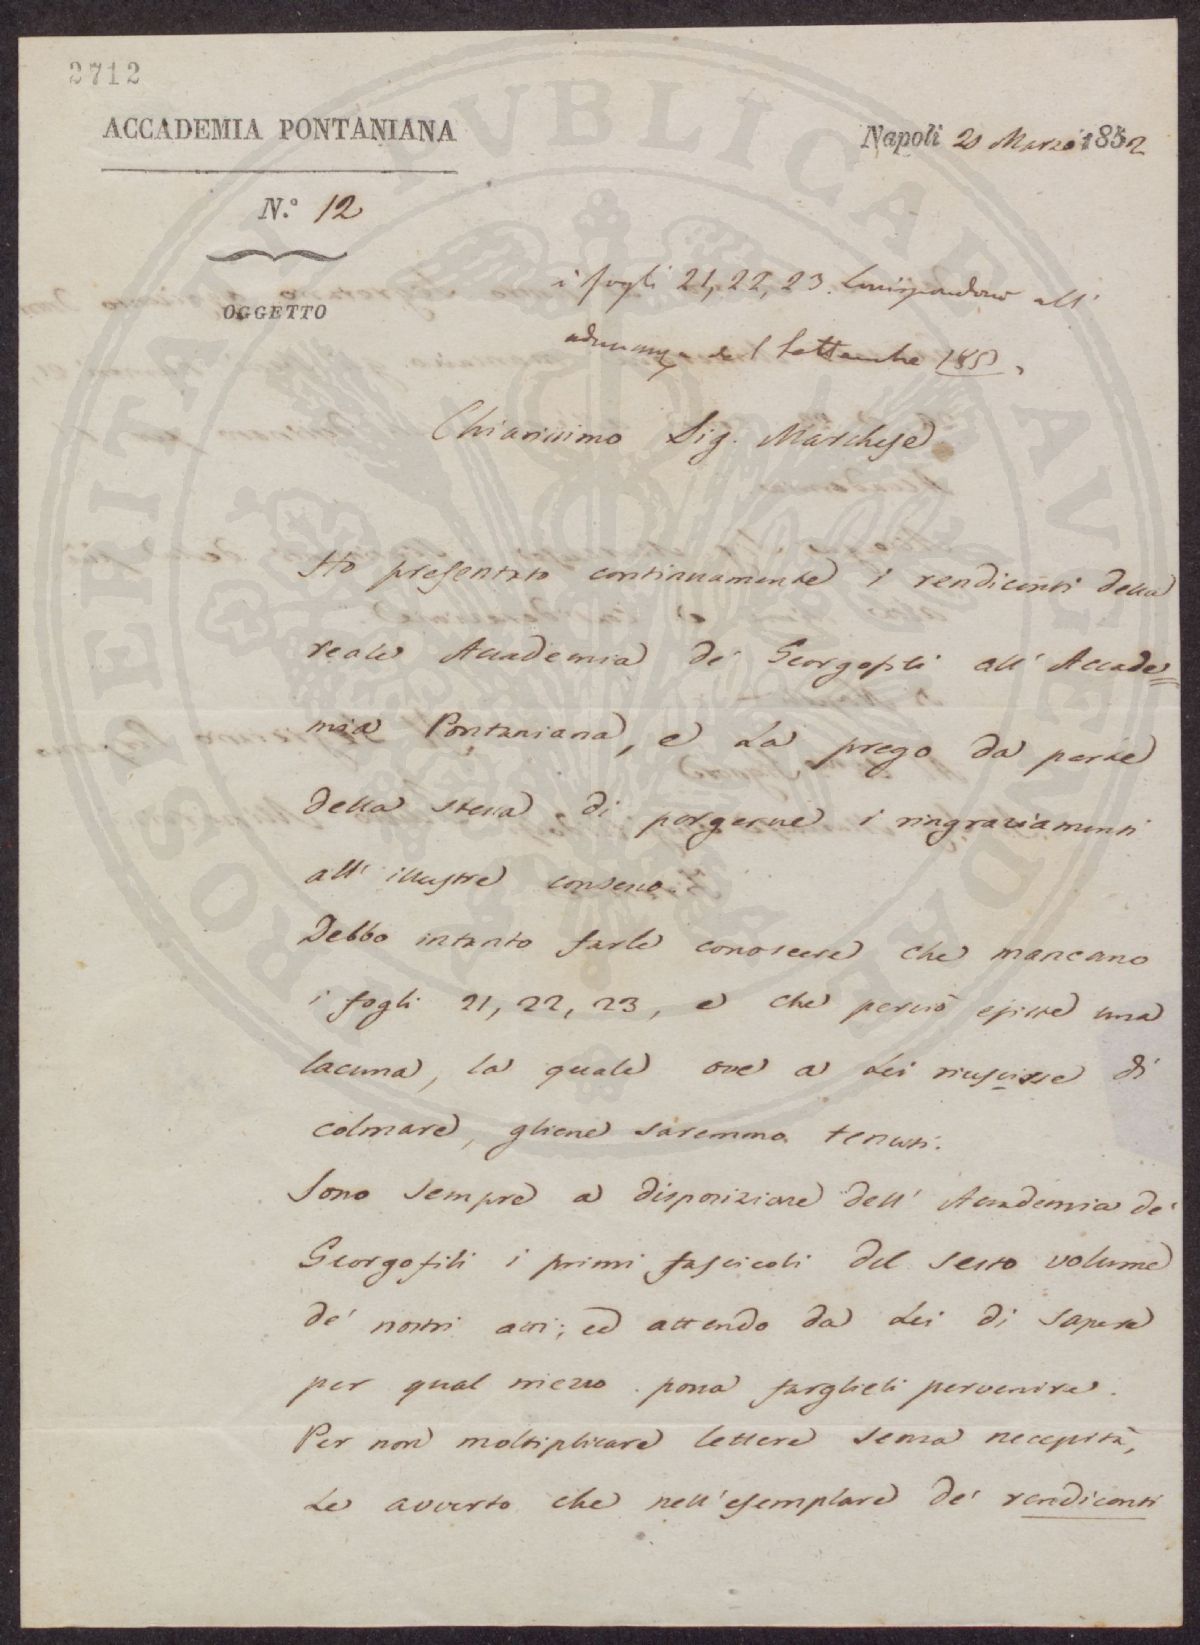 2712
ACCADEMIA PONTANIANA
Napoli 20 Marzo 1852
N.º 12
OGGETTO
i fogli 21, 22, 23. Corrispondono all'
adunanza de 1 Settembre 1850.
Chiarissimo Sig. Marchese
Ho presentato continuamente i rendiconti della
reale Accademia de' Georgofili all' Accade=
mia Pontaniana, e La prego da parte
della stessa di porgerne i ringraziamenti
all' illustre consesso.
Debbo intanto farle conoscere che mancano
i fogli 21, 22, 23, e che perciò esiste una
lacuna, la quale ove a Lei riuscisse di
colmare, gliene saremmo tenuti.
Sono sempre a disposizione dell' Accademia de'
Georgofili i primi fascicoli del sesto volume
de' nostri atti; ed attendo da Lei di sapere
per qual mezzo possa farglieli pervenire.
Per non moltiplicare lettere senza necessità,
Le avverto che nell' esemplare de' rendiconti
PROSPERITATI PUBLICAE AUGENDAE